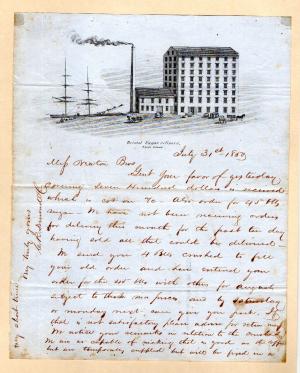 Bristol Sugar refinery,
July 31st 1850
Mess Newton Bros
Gent Your favor of yesterday
Covering Seven Hundred dollars is received
which is cot on %. Also order for 45 Bbls
sugar. We have not been receiving orders
for delivery this month for the past ten day
having sold all that could be delivered
We send you 4 Bbls Crushed to fill
your old order and have entered your
order for the 45 Bbls with others for August
subject to those prices and by Saturday
or monday next give you part. If
that is not satisfactory please advise for return mail
We notice your remarks in relation to the crushed
We are as capable of making that as good as the
but are temporary but will be fixed in a
very short time Very truly yours